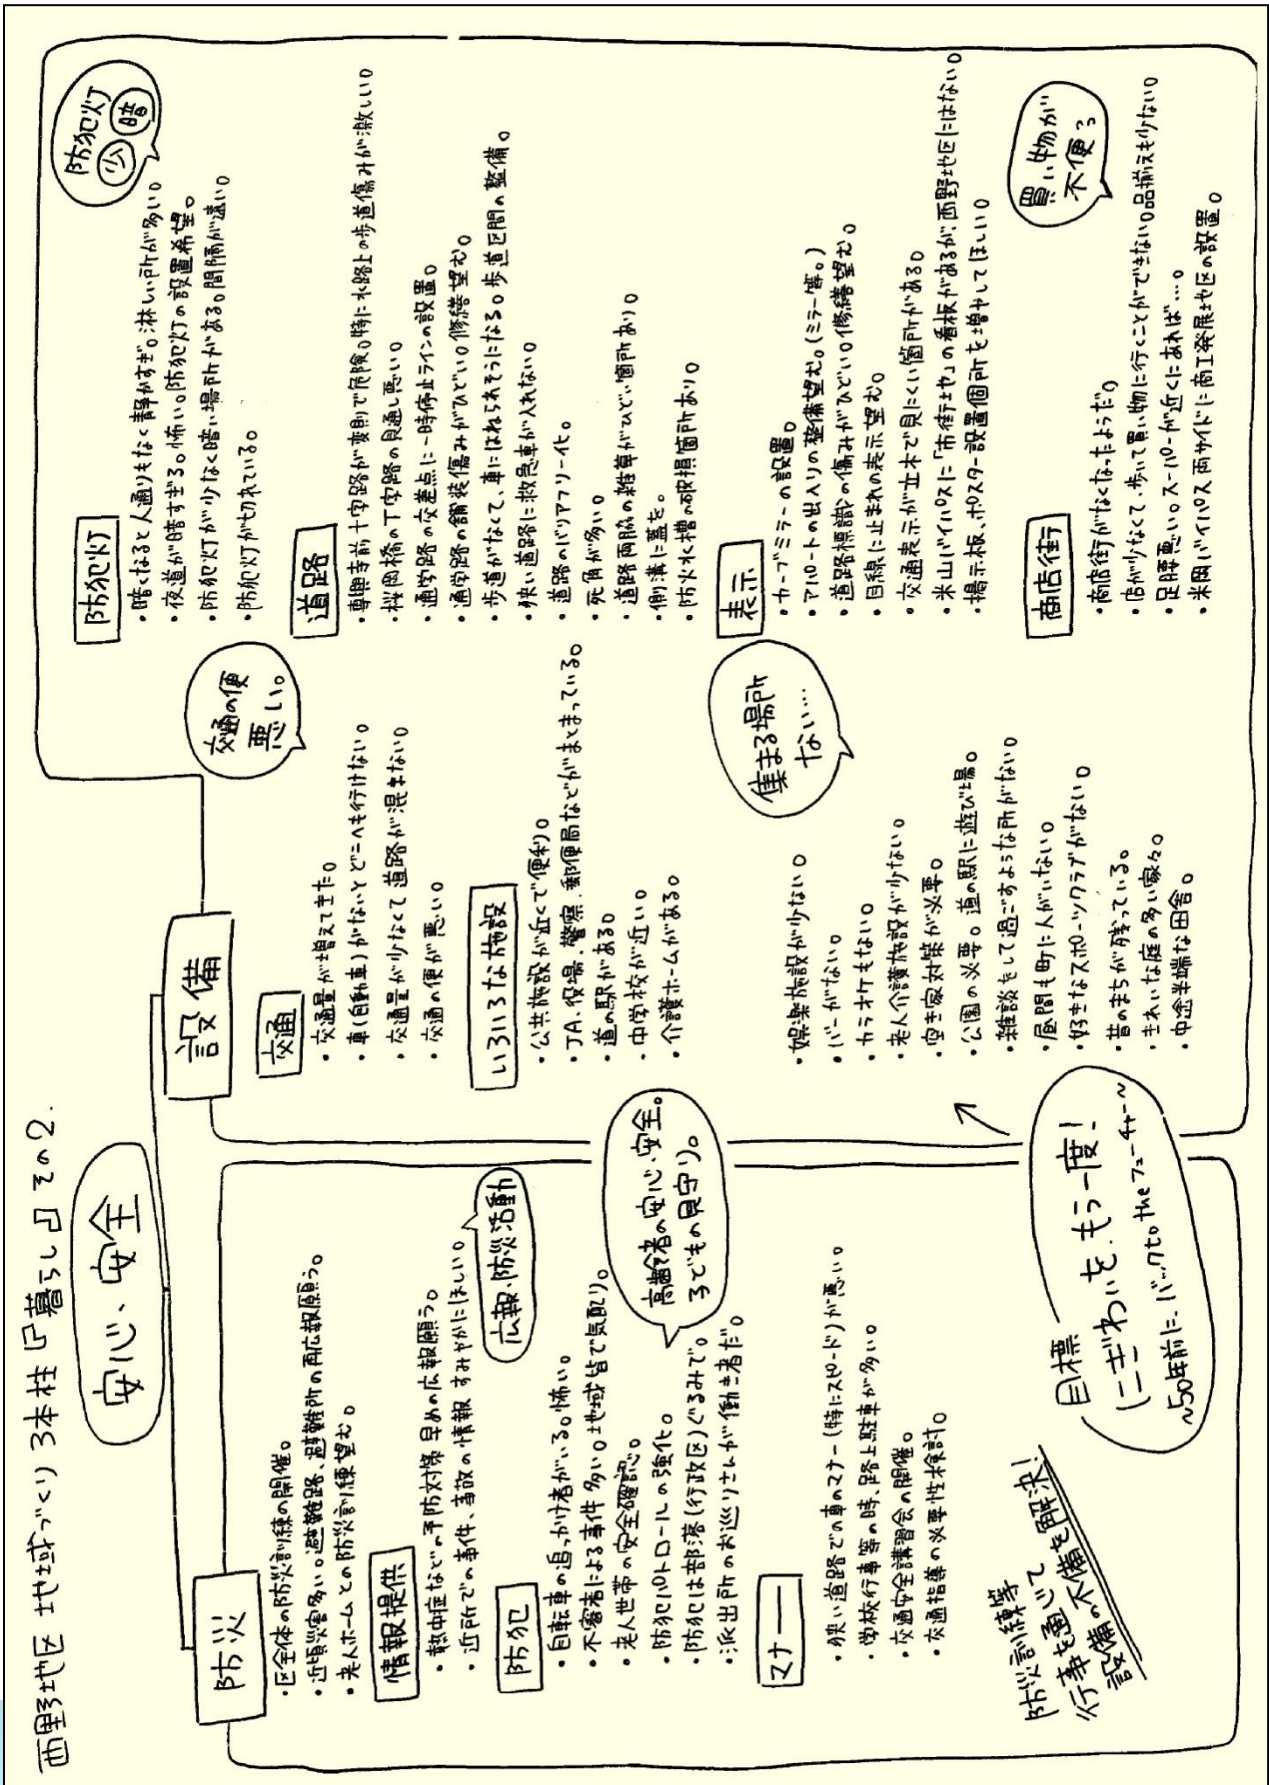 西野地区 地域づくり 3本柱『暮らし』その2.
安心、安全
防災
・区全体の防災訓練の開催。
・近頃災害多い。避難路、避難所の再広報願う。
・老人ホームとの防災訓練望む。
情報提供
・熱中症などの予防対策 早めの広報願う。
・近所での事件、事故の情報 すみやかにほしい。
広報・防災活動
防犯
・自転車の追っかけ者がいる。怖い。
・不審者による事件多い。地域皆で気配り。
・老人世帯の安全確認。
・防犯パトロールの強化。
・防犯は部落(行政区)ぐるみで。
・派出所のお巡りさんが働き者だ。
高齢者の安心、安全。
子どもの見守り。
マナー
・狭い道路での車のマナー(特にスピード)が悪い。
・学校行事等の時、路上駐車が多い。
・交通安全講習会の開催。
・交通指導の必要性検討。
防災訓練等
行事を通じて
設備の不備を解決!
目標
にぎわいを、もう一度!
~50年前に、バックto theフューチャー~
設備
交通
・交通量が増えてきた。
・車(自動車)がないとどこへも行けない。
・交通量が少なくて道路が混まない。
・交通の便が悪い。
交通の便
悪い。
いろいろな施設
・公共施設が近くて便利。
・JA、役場、警察、郵便局などがまとまっている。
・道の駅がある。
・中学校が近い。
・介護ホームがある。
・娯楽施設が少ない。
・バーがない。
・カラオケもない。
・老人介護施設が少ない。
・空き家対策が必要。
・公園の必要。道の駅に遊び場。
・雑談をして過ごすような所がない。
・昼間も町に人がいない。
・好きなスポーツクラブがない。
・昔のまちが残っている。
・きれいな庭の多い家々。
・中途半端な田舎。
集まる場所
ない…
防犯灯
・暗くなると人通りもなく静かすぎ。淋しい所が多い。
・夜道が暗すぎる。怖い。防犯灯の設置希望。
・防犯灯が少なく暗い場所がある。間隔が遠い。
・防犯灯が切れている。
防犯灯
少 暗
道路
・専興寺前十字路が変則で危険。特に水路上の歩道傷みが激しい。
・桜岡橋の丁字路の見通し悪い。
・通学路の交差点に一時停止ラインの設置。
・通学路の舗装傷みがひどい。修繕望む。
・歩道がなくて、車にはねられそうになる。歩道区間の整備。
・狭い道路に救急車が入れない。
・道路のバリアフリー化。
・死角が多い。
・道路両脇の雑草がひどい箇所あり。
・側溝に蓋を。
・防火水槽の破損箇所あり。
表示
・カーブミラーの設置。
・アパートの出入りの整備望む。(ミラー等。)
・道路標識の傷みがひどい。修繕望む。
・目線に止まれの表示望む。
・交通表示が立木で見にくい箇所がある。
・米山バイパスに「市街地」の看板があるが、西野地区にはない。
・掲示板、ポスター設置個所を増やしてほしい。
商店街
・商店街がなくなったようだ。
・店が少なくて、歩いて買い物に行くことができない。品揃えも少ない。
・足腰悪い。スーパーが近くにあれば…。
・米岡バイパス両サイドに商工発展地区の設置。
買い物が
不便っ